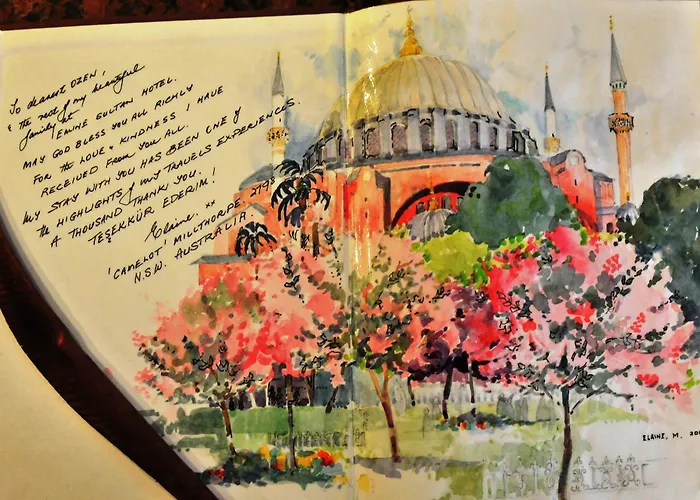 To dearest OZEN,
& the rest of my beautiful
family at
EMINE SULTAN HOTEL.
MAY GOD BLESS YOU ALL RICHLY
FOR the LOVE & KINDNESS I HAVE
RECEIVED FROM YOU ALL.
MY STAY WITH YOU HAS BEEN ONE of
the HIGHLIGHTS of MY TRAVELS EXPERIENCES.
A THOUSAND THANK YOU.
TEŞEKKÜR EDERIM!
Elaine. xx
'CAMELOT' MILLTHORPE. 2798
N.S.W. AUSTRALIA.
ELAINE, M.